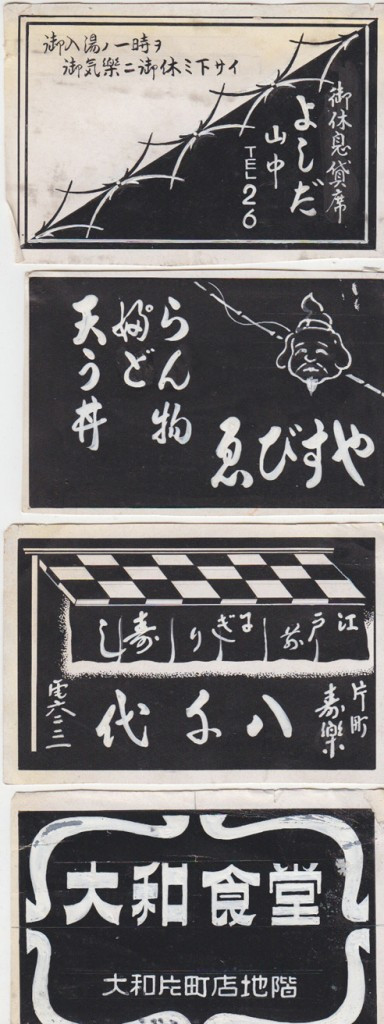 御入湯ノ一時ヲ
御気樂ニ御休ミ下サイ
御休息貸席
よしだ
山中
TEL 26
天婦ら
うどん
丼物
ゑびすや
江戸前 にぎり 寿し
片町
寿樂
八千代
電六二三
大和食堂
大和片町店地階